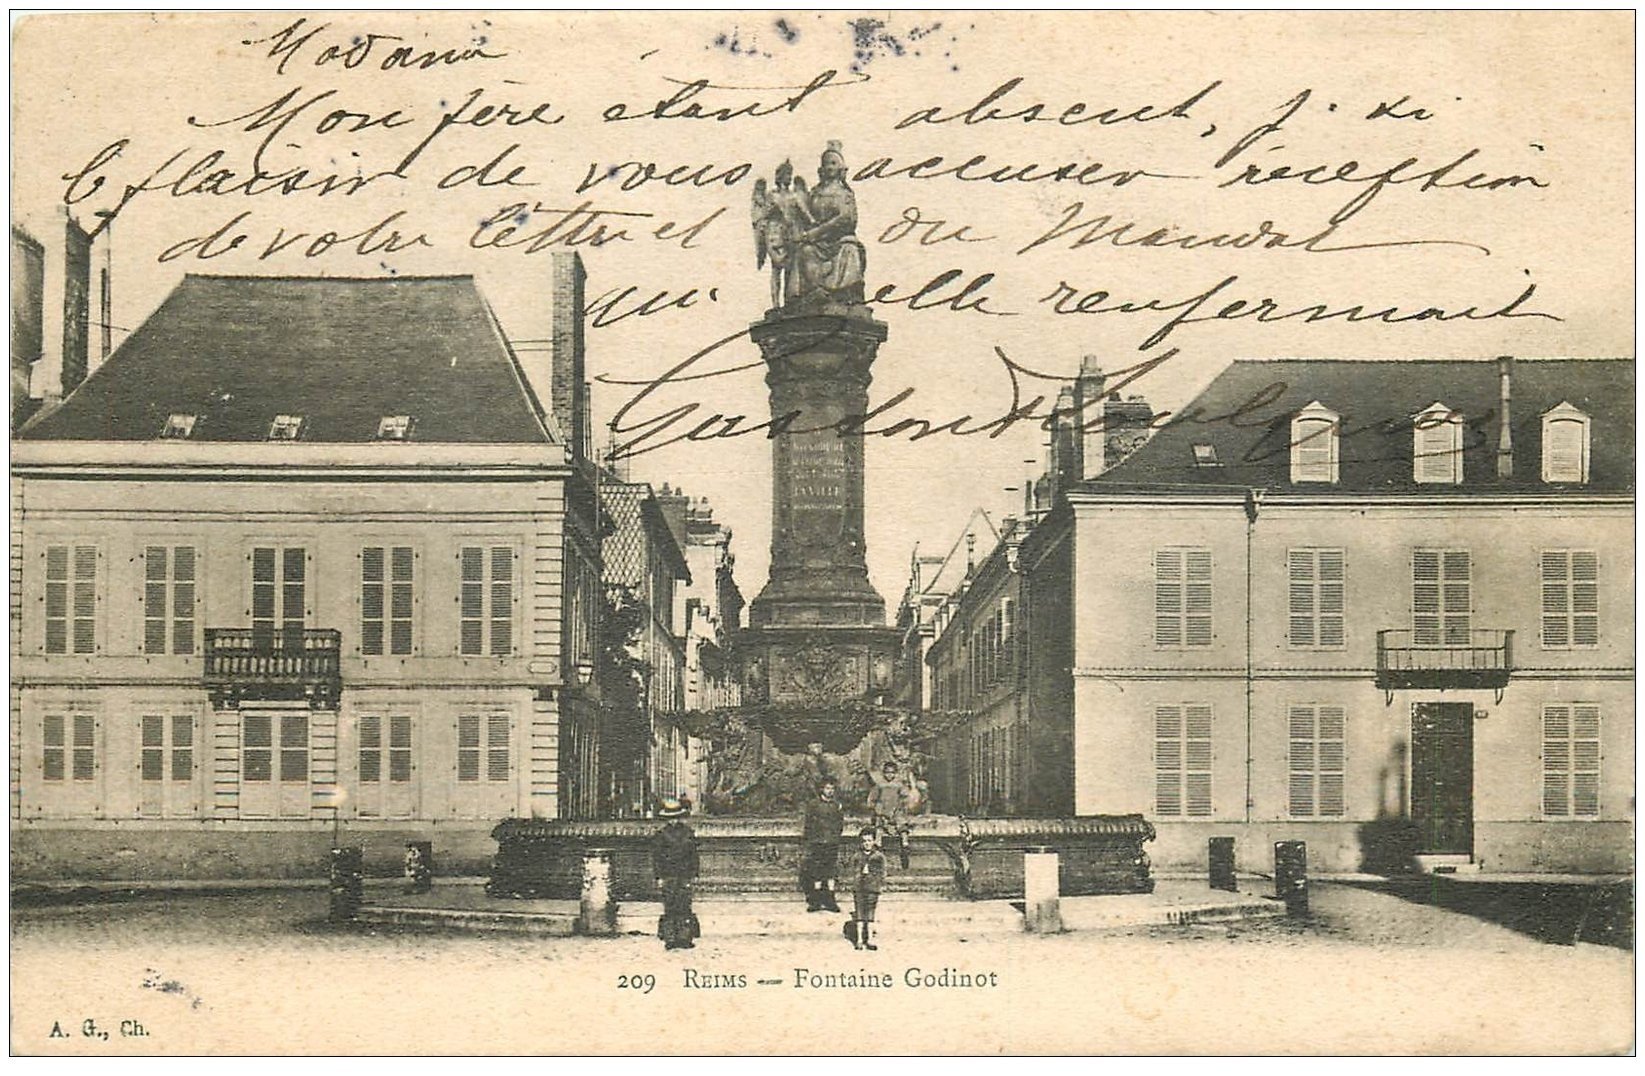 Madame
Mon père étant absent, j'ai
le plaisir de vous accuser réception
de votre lettre et du Mandat
qu'elle renfermait
Gaston
LA VILLE
209 REIMS — Fontaine Godinot
A. G., Ch.